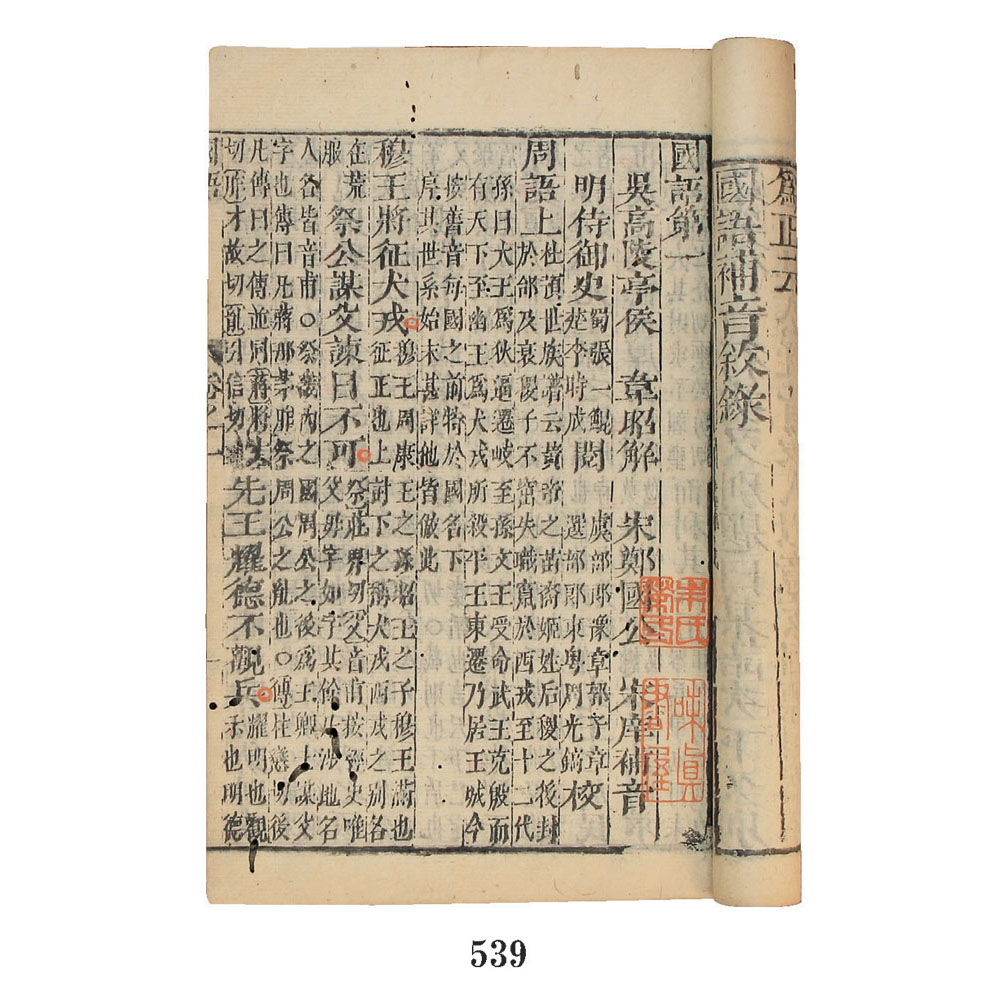 國語補音敘錄
國語第一
吳高陵亭侯 韋昭解 宋鄭國公 宋庠補音
明侍御史 蜀張一鯤 楚李時成 閱 虞部郎豫章郭子章 選部郎東粵周光鎬 校
周語上
杜預世族譜云黃帝之苗裔姬姓后稷之後封
於邰及衰夏子不窋失職竄於西戎至十二代
孫曰大王為狄逼遷岐至孫文王受命武王克殷而
有天下至幽王為犬戎所殺平王東遷乃居王城今
按舊音每國之前特於國名下
序其世系始末甚詳他皆倣此
穆王將征犬戎
穆王周康王之孫昭王之子穆王滿也
征正也上討下之稱犬戎西戎之別名
在荒服
祭公謀父諫曰不可
祭莊界切父音甫按經史唯
父母字如字其餘
人名皆音甫○祭畿內之國周公之後為王卿士謀父
字也傳曰凡蔣邢茅胙祭周公之胤也○
凡傳曰之傳並同蔣將
先王耀德不觀兵
耀明也觀
示也明德